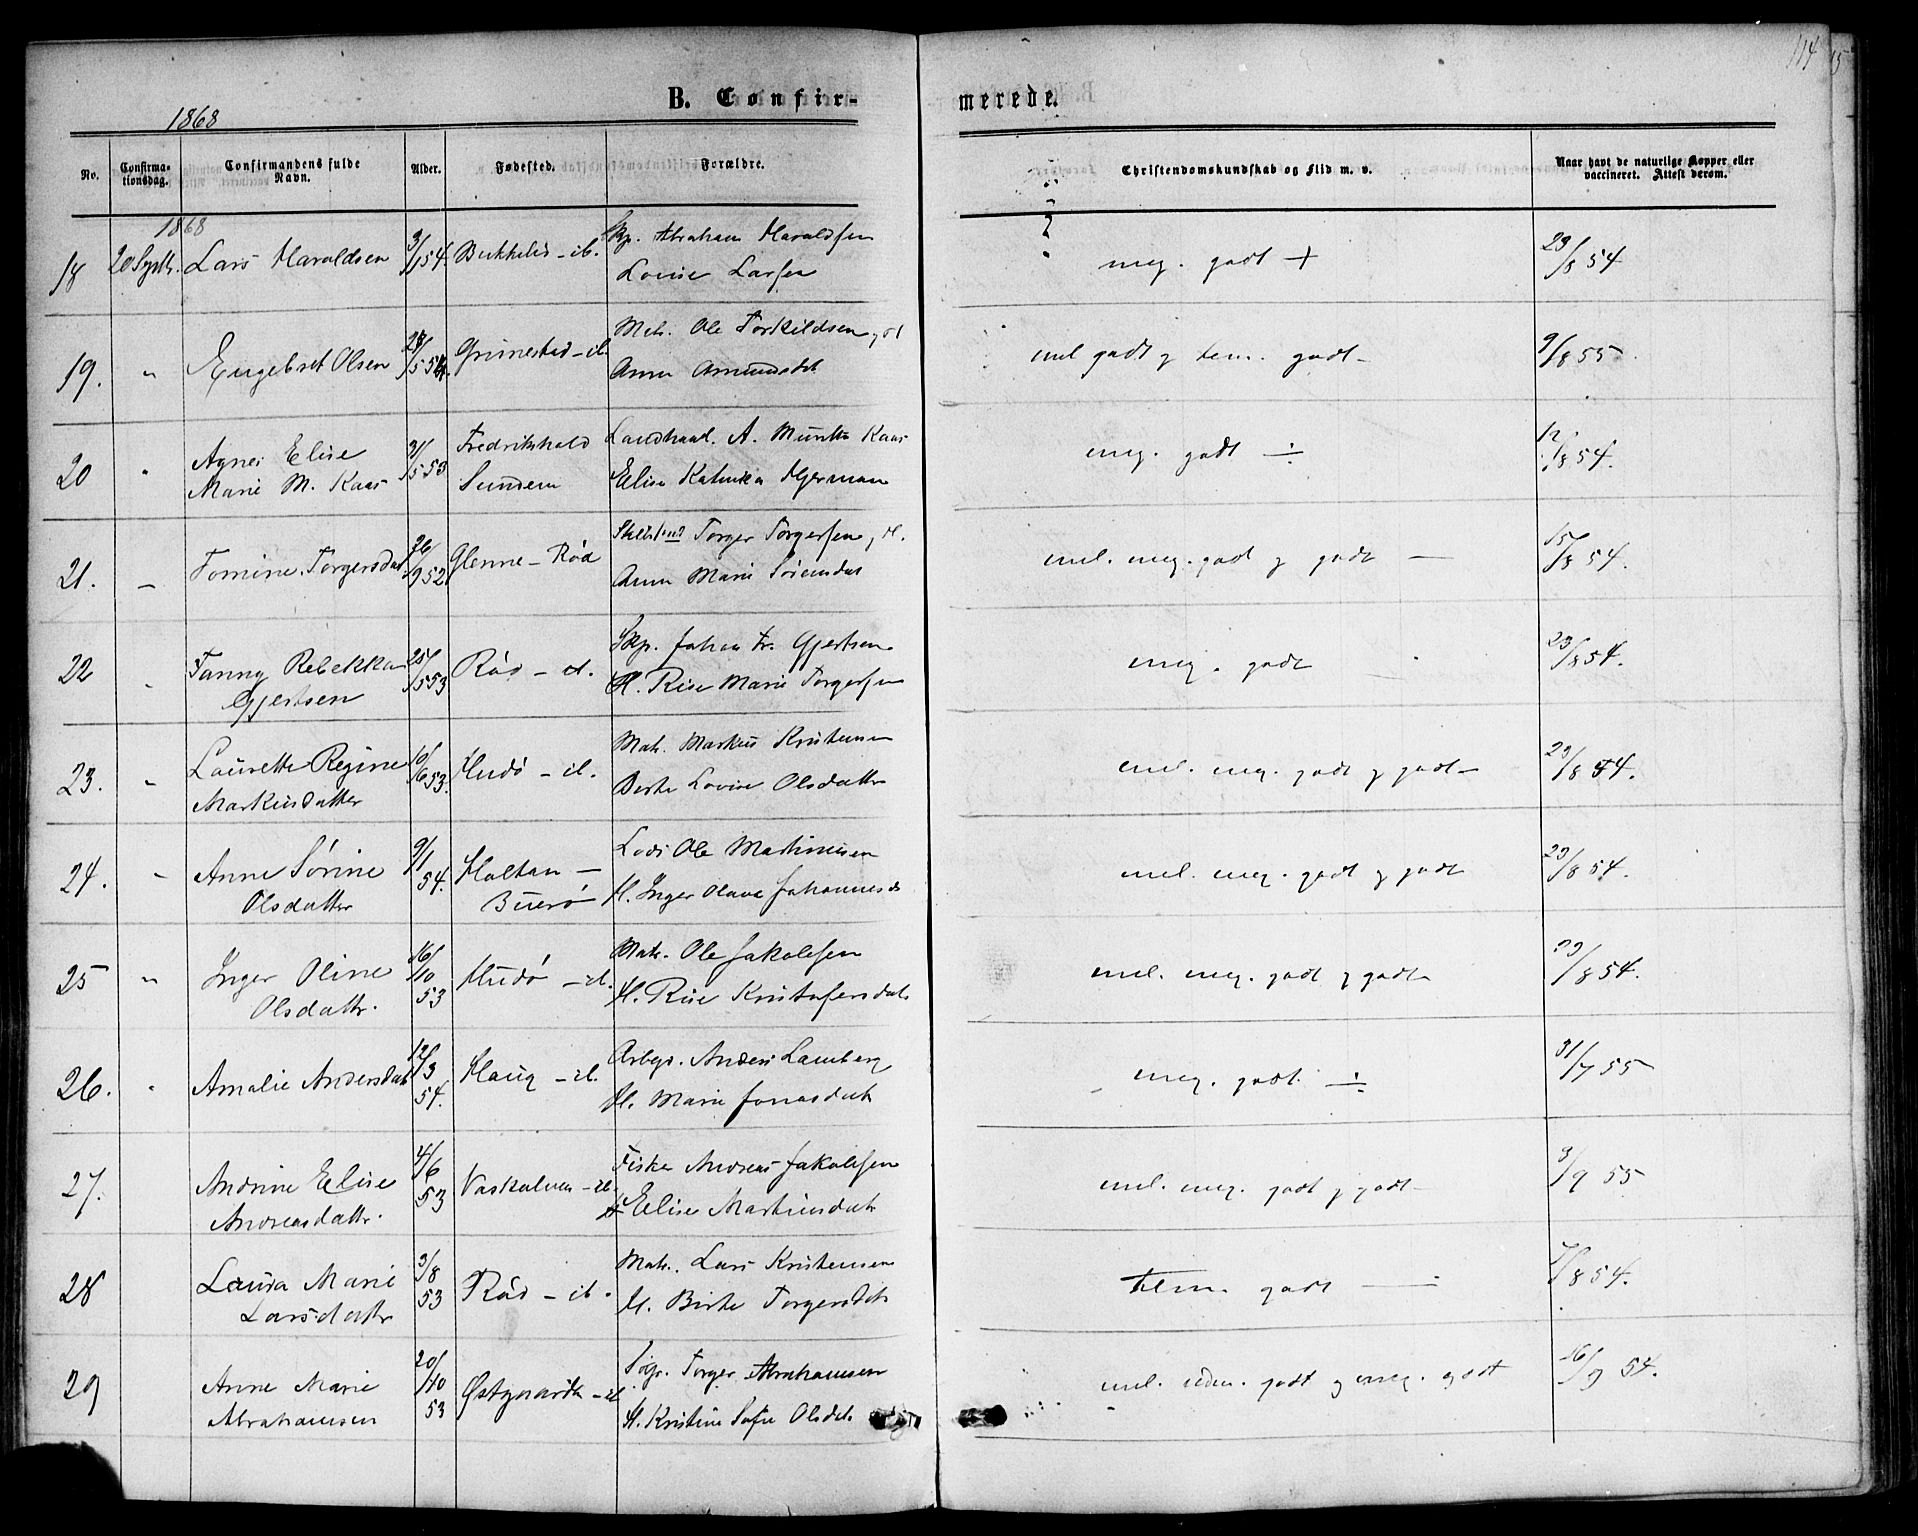 114
15
1868
B. Confir-
merede.
No.
Confirma-
tionsdag.
Confirmandens fulde
Navn.
Alder.
Fødested.
Forældre.
Christendomskundskab og Flid m. v.
Naar havt de naturlige Kopper eller
vaccineret. Attest derom.
1868
18 20 Septr. Lars Haraldsen 3/1 54. ib. Skp. Abraham Haraldsen
Lovise Larsen
meg. godt +
23/8 54
19. " Engebret Olsen 5 54. Grimestad - ib. Matr. Ole Torkildsen
Anna Amundsdt
mel godt og tem. godt -
9/8 55
20 " Agnes Elise
Marie M. Kaas
5 53 Fredrikshald
Sundene
Landhand. A. Munthe Kaas
Elise Katinka Hjerman
meg. godt ÷
12/8 54.
21. - Tomine Torgersdat 26/9 52 Glenne - Rød Torger Torgersen
Anna Marie Sørensdat
mel. meg. godt og godt -
15/8 54.
22 " Fanny Rebekka
Gjertsen
25/5 53 Rød - ib. Skp. Johan Fr. Gjertsen
H. Rise Marie Torgersen
meg. godt
23/8 54.
23. " Laurette Regine
Markusdatter
10/6 53. Hudø - ib. Matr. Markus Kristensen
Berte Lovise Olsdattr
mel. meg. godt og godt -
23/8 54.
24. " Anne Sørine
Olsdatter
9/1 54. Holtan -
Buerø
Lods Ole Martinusen
H. Inger Olava Johannesd
mel. meg. godt og godt
23/8 54.
25 " Inger Oline
Olsdattr.
16/10 53 Hudø - ib. Matr. Ole Jakobsen
H. Rise Kristofersdat
mel. meg. godt og godt
23/8 54.
26. " Amalie Andersdat 12/3 54. Haug - ib. Arbejd. Anders Lamberg
H. Marie Jonasdatr
meg. godt. ÷
31/7 55
27. Andrine Elise
Andreasdattr.
4/6 53 Vaskalven - ib. Fisker Andreas Jakobsen
H Elise Martinsdatr
mel. meg. godt og godt
3/9 55
28 Laura Marie
Larsdattr
3/8 53 Rød - ib. Matr. Lars Kristensen
H. Birte Torgersdtr
tem. godt -
7/8 54.
29 Anne Marie
Abrahamsen
20/10 53 Østgaarden - ib Torger Abrahamsen
H. Kristine Sofie Olsdatr
mel. uden. godt og meg. godt
26/9 54.